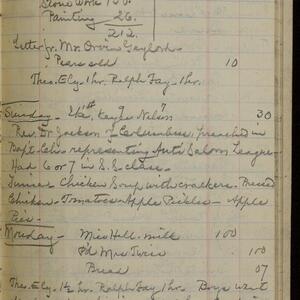 Stone Work 160.
Painting 26.
212.
Letter fr. Mr. Orvin Gaylord
Pears sold 10
Theo. Ely - 1 hr. Ralph Fay - 1 hr.
Sunday - Nelson 30
Rev. Dr. Jackson of Columbus, preached in
Bapt. Ch. representing Anti Saloon League -
Had 6 or 7 in S.S. class.
Dinner Chicken Soup with crackers. Pressed
Chicken - Tomatoes - Apple Pickles - Apple
Pies -
Monday - Miss Hill - milk 100
Pd Mrs 100
Bread 07
Theo. Ely 1½ hr. Ralph Fay 1 hr. Boys went